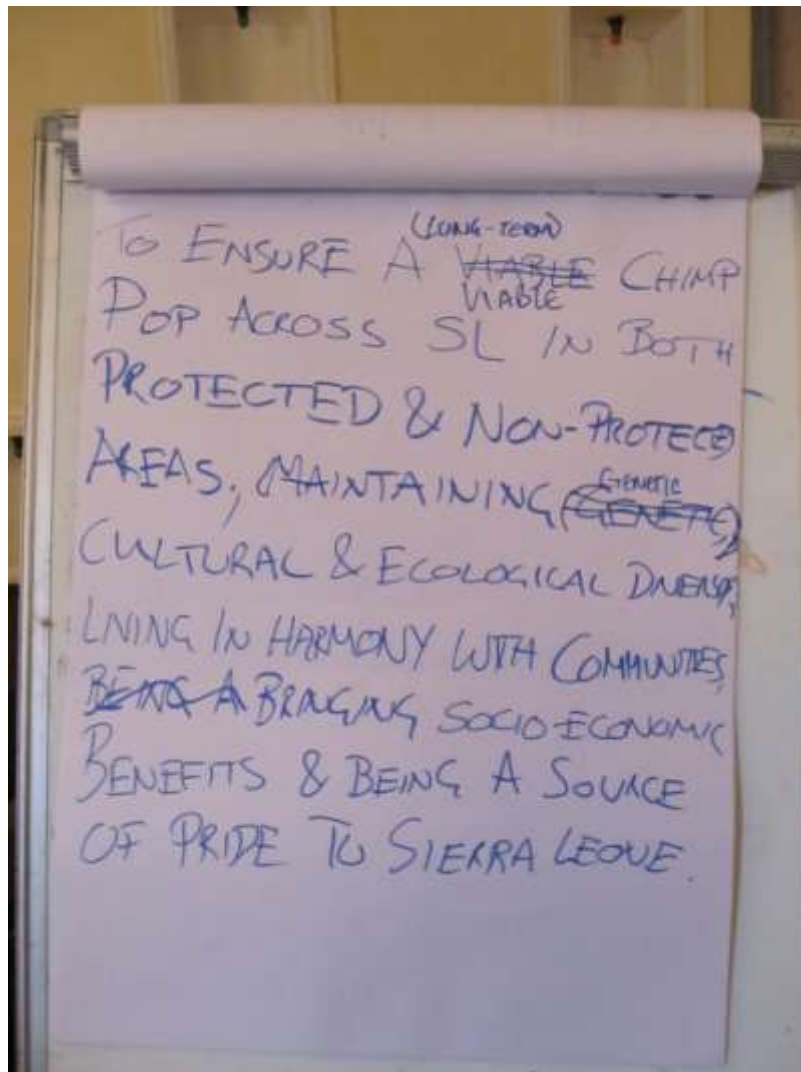 (LONG-TERM)
TO ENSURE A VIABLE CHIMP
VIABLE
POP ACROSS SL IN BOTH
PROTECTED & NON-PROTECED
AREAS, MAINTAINING GENETIC
(GENETIC,)
CULTURAL & ECOLOGICAL
LIVING IN HARMONY WITH COMMUNITIES,
BEING A BRINGING SOCIO-ECONOMIC
BENEFITS & BEING A SOURCE
OF PRIDE TO SIERRA LEONE.